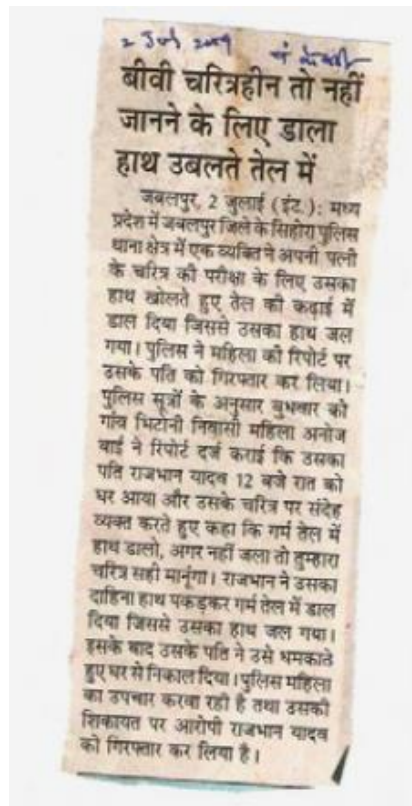 2 July 2009
बीवी चरित्रहीन तो नहीं
जानने के लिए डाला
हाथ उबलते तेल में
जबलपुर, 2 जुलाई (इंट.): मध्य
प्रदेश में जबलपुर जिले के सिहोरा पुलिस
थाना क्षेत्र में एक व्यक्ति ने अपनी पत्नी
के चरित्र की परीक्षा के लिए उसका
हाथ खोलते हुए तेल की कढ़ाई में
डाल दिया जिससे उसका हाथ जल
गया। पुलिस ने महिला की रिपोर्ट पर
उसके पति को गिरफ्तार कर लिया।
पुलिस सूत्रों के अनुसार बुधवार को
गांव भिटोनी निवासी महिला अनोज
बाई ने रिपोर्ट दर्ज कराई कि उसका
पति राजभान यादव 12 बजे रात को
घर आया और उसके चरित्र पर संदेह
व्यक्त करते हुए कहा कि गर्म तेल में
हाथ डालो, अगर नहीं जला तो तुम्हारा
चरित्र सही मानूंगा। राजभान ने उसका
दाहिना हाथ पकड़कर गर्म तेल में डाल
दिया जिससे उसका हाथ जल गया।
इसके बाद उसके पति ने उसे धमकाते
हुए घर से निकाल दिया। पुलिस महिला
का उपचार करवा रही है तथा उसकी
शिकायत पर आरोपी राजभान यादव
को गिरफ्तार कर लिया है।